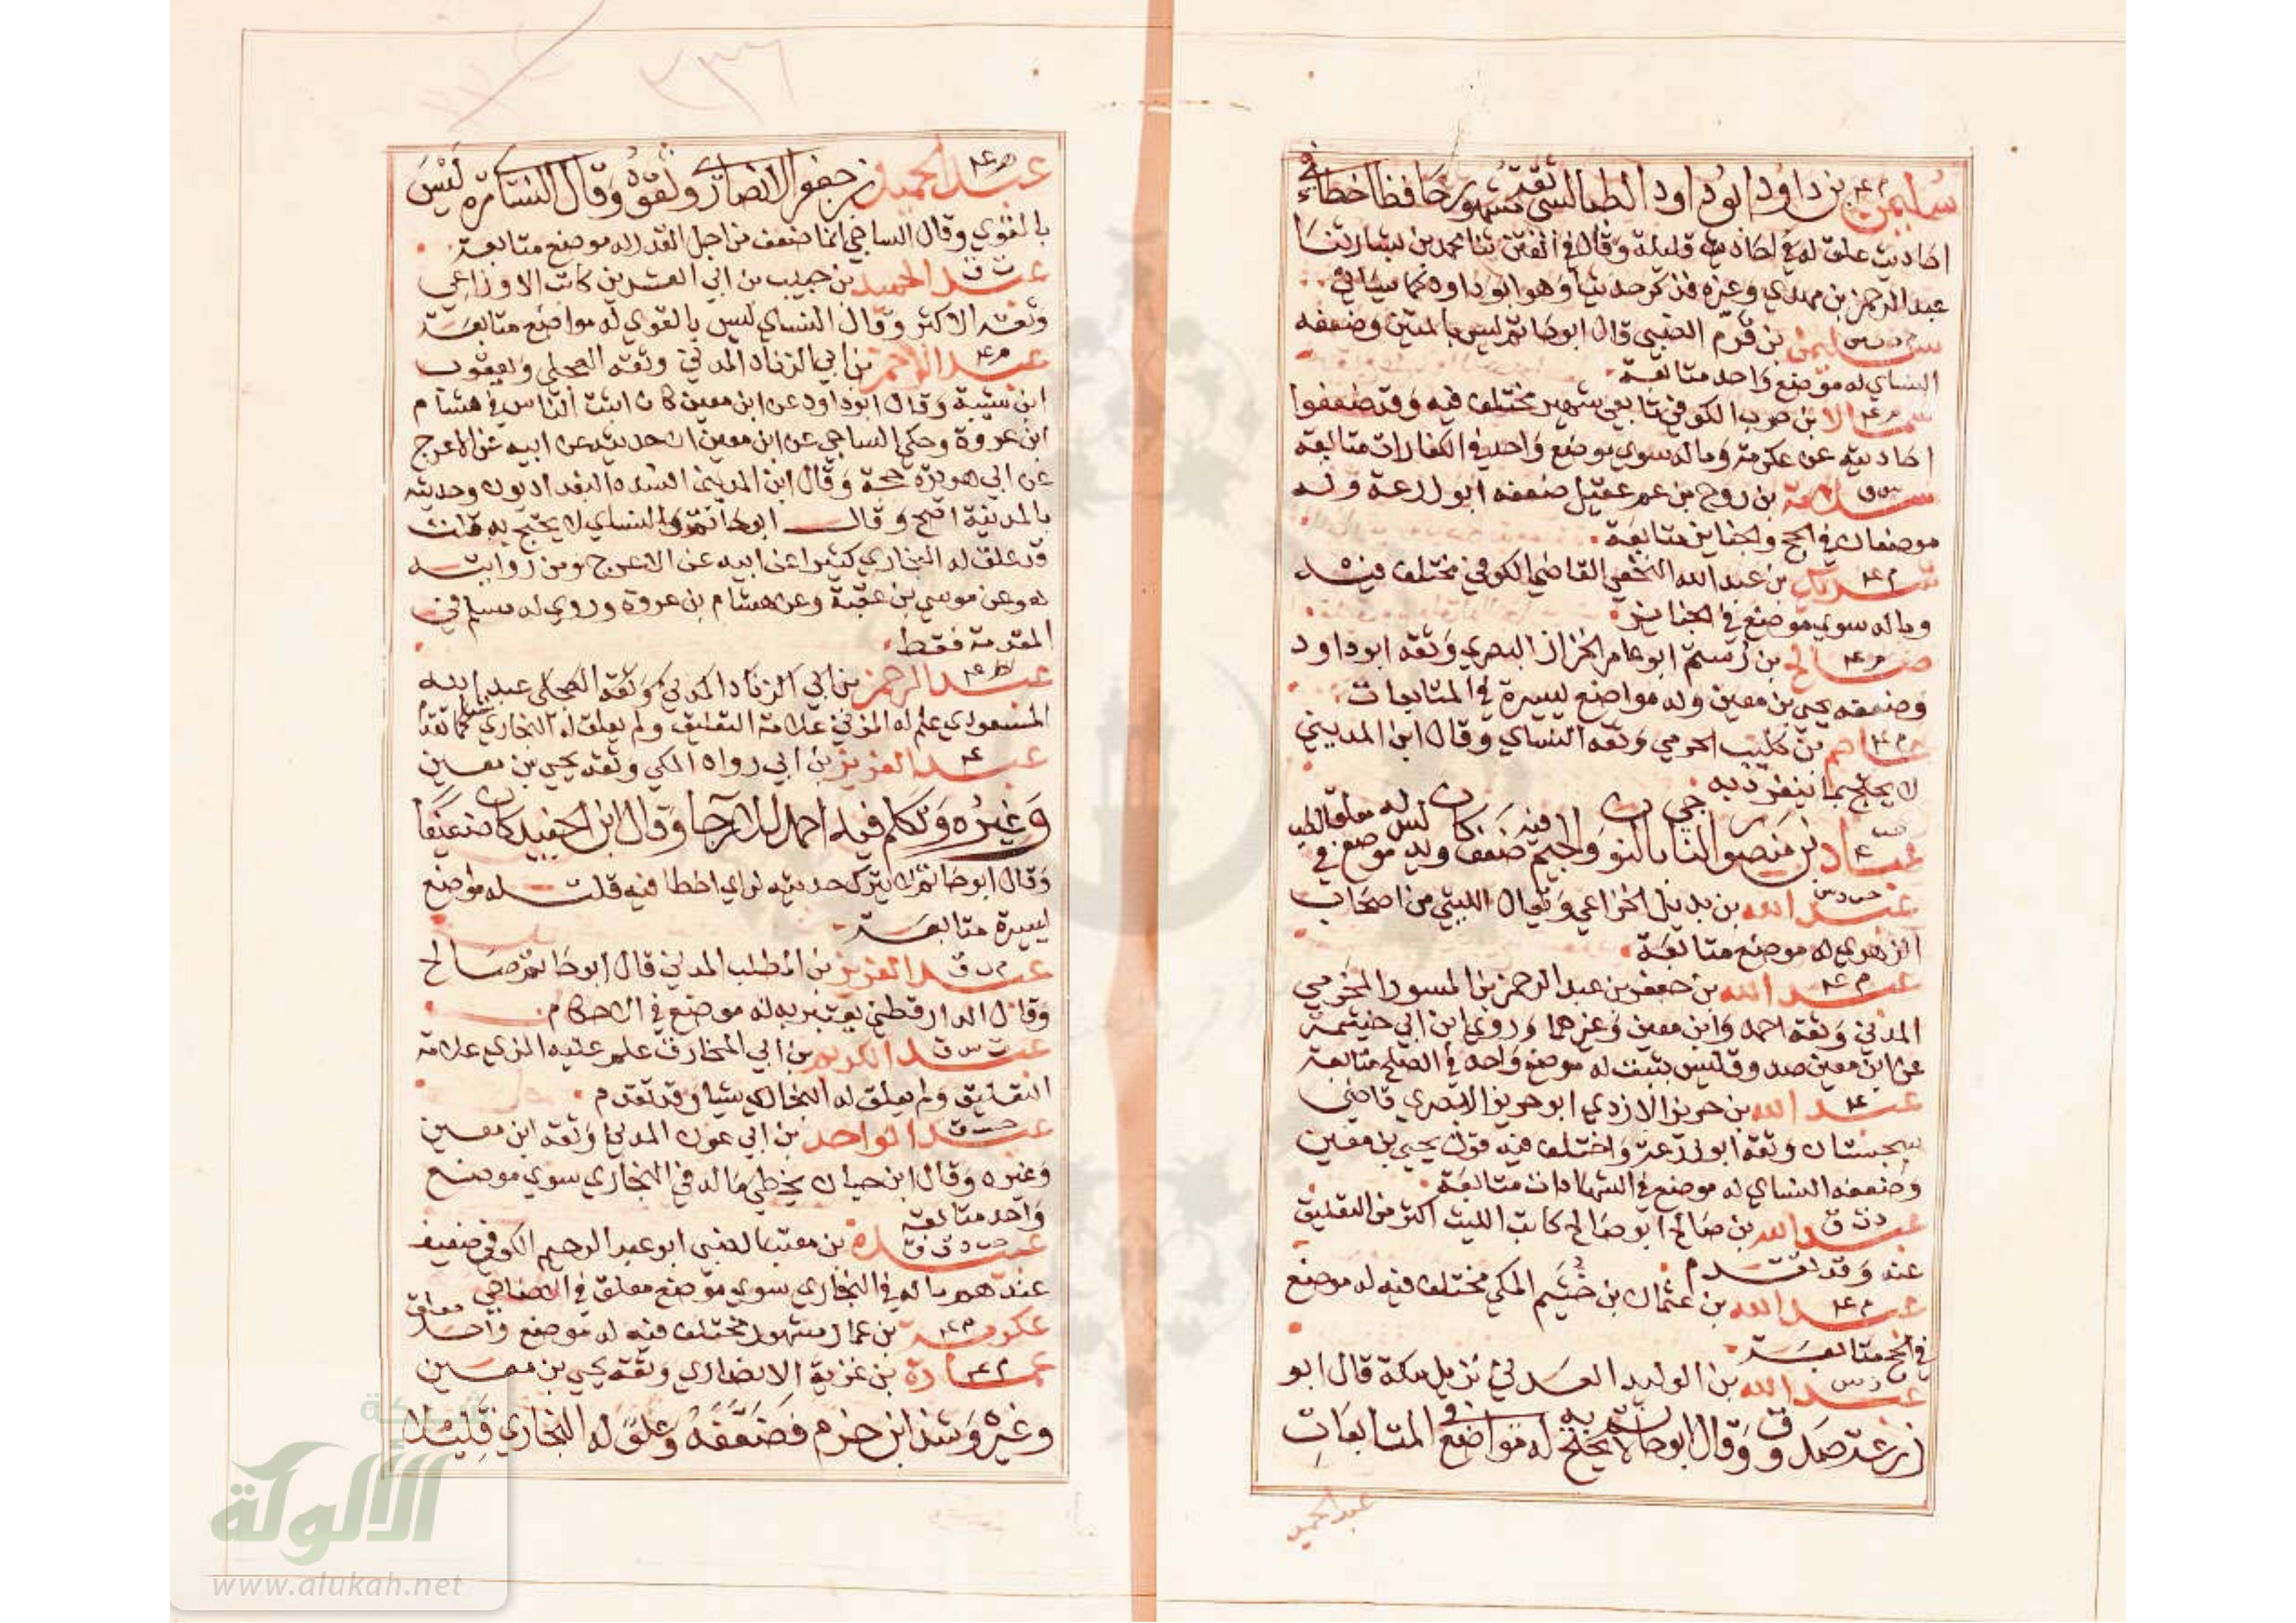 سليمن بن داود ابو داود الطيالسي ثقة مشهور حافظ اخطا في
احاديث علق له في احاديث قليلة وقال في الفتن ثنا محمد بن بشار ثنا
عبد الرحمن بن مهدي وغيره فذكر حديثا وهو ابو داود كما سياتي
سليمن بن قرم الضبي قال ابو حاتم ليس بالمتين وضعفه
النساي له موضع واحد متابعة
سماك بن حرب الكوفي تابعي شهير مختلف فيه وقد ضعفوا
احاديثه عن عكرمة وماله سوي موضع واحد في الكفارات متابعة
سلامة بن روح بن عم عقيل ضعفه ابو زرعة وله
موضعان في الحج والجنايز متابعة
شريك بن عبد الله النخعي القاضي الكوفي مختلف فيه
وماله سوي موضع في الجنايز
صالح بن رستم ابو عامر الخزاز البصري وثقه ابو داود
وضعفه يحيي بن معين وله مواضع يسيرة في المتابعات
عاصم بن كليب الجرمي وثقه النساي وقال ابن المديني
لا يحتج بما ينفرد به
عباد بن منصور الناجي بالنون والجيم فيه ضعف وكان ليس له موضع في معلق الطب
عبد الله بن بديل الخزاعي ويقال الليثي من اصحاب
الزهري له موضع متابعة
عبد الله بن جعفر بن عبد الرحمن بن المسور المخرمي
المدني وثقه احمد وابن معين وغيرهما وروي ابن ابي خيثمة
عن ابن معين صدوق ليس بثبت له موضع واحد في الصلح متابعة
عبد الله بن حريز الازدي ابو حريز البصري قاضي
سجستان وثقه ابو زرعة واختلف فيه قول يحيي بن معين
وضعفه النساي له موضع في الشهادات متابعة
عبد الله بن صالح ابو صالح كاتب الليث اكثر من التعليق
عنه وقد تقدم
عبد الله بن عثمان بن خثيم المكي مختلف فيه له موضع
في الحج متابعة
عبد الله بن الوليد العدني نزيل مكة قال ابو
زرعة صدوق وقال ابو حاتم لا يحتج به له مواضع في المتابعات
عبد الحميد
٢٣٦
عبد الحميد بن جعفر الانصاري وثقوه وقال النساي مرة ليس
بالقوي وقال الساجي انما ضعف من اجل القدر له موضع متابعة
عبد الحميد بن حبيب بن ابي العشرين كاتب الاوزاعي
وثقه الاكثر وقال النساي ليس بالقوي له مواضع متابعة
عبد الرحمن بن ابي الزناد المدني وثقه العجلي ويعقوب
ابن شيبة وقال ابو داود عن ابن معين كان اثبت الناس في هشام
ابن عروة وحكي الساجي عن ابن معين ان حديثه عن ابيه عن الاعرج
عن ابي هريرة حجة وقال ابن المديني افسده البغداديون وحديثه
بالمدينة اصح وقال ابو حاتم والنساي لا يحتج به قلت
قد علق له البخاري كثيرا عن ابيه عن الاعرج ومن روايته
له وعن موسي بن عقبة وعن هشام بن عروة وروي له مسلم في
المقدمة فقط
عبد الرحمن بن ابي الزناد المدني وثقه العجلي عبد الله
المسعودي علم له المزني علامة التعليق ولم يعلق له البخاري شيا كما تقدم
عبد العزيز بن ابي رواد المكي وثقه يحيي بن معين
وغيره وتكلم فيه احمد للارجا وقال ابن الجنيد كان ضعيفا
وقال ابو حاتم لا يترك حديثه لراي اخطا فيه قلت له مواضع
يسيرة متابعة
عبد العزيز بن المطلب المدني قال ابو حاتم صالح
وقال الدارقطني يعتبر به له موضع في الاحكام
عبد الكريم بن ابي المخارق علم عليه المزي علامة
التعليق ولم يعلق له البخاري شيا وقد تقدم
عبد الواحد بن ابي عون المدني وثقه ابن معين
وغيره وقال ابن حبان يخطي ماله في البخاري سوي موضع
واحد متابعة
عبيدة بن معتب الضبي ابو عبد الرحيم الكوفي ضعيف
عندهم ماله في البخاري سوي موضع معلق في الاضاحي
عكرمة بن عمار مشهور مختلف فيه له موضع واحد معلق
عمارة بن غزية الانصاري وثقه يحيي بن معين
وغيره وشذ ابن حزم فضعفه وعلق له البخاري قليلا
شبكة
الألوكة
www.alukah.net